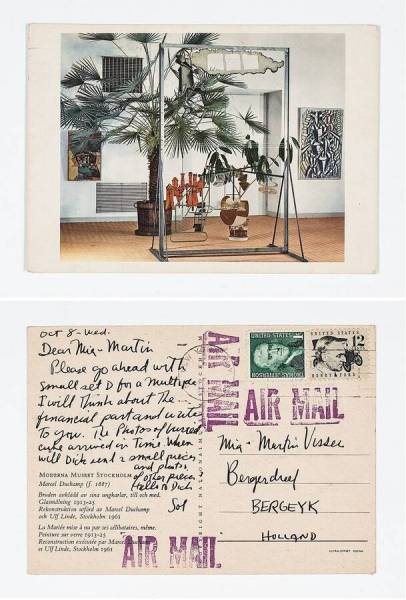 Oct 8-wed.
Dear Mia-Martin
Please go ahead with
small set D for a Multiple
I will think about the
financial part and write
to you. The Photos of buried
cube arrived in Time. When
will Dick send 2 small pieces
and photos
of other pieces
Hello to Dick
Sol
MODERNA MUSEET STOCKHOLM
Marcel Duchamp (f. 1887)
Bruden avklädd av sina ungkarlar, till och med.
Glasmålning 1915-23
Rekonstruktion utförd av Marcel Duchamp
och Ulf Linde, Stockholm 1961
La Mariée mise à nu par ses célibataires, même.
Peinture sur verre 1915-23
Reconstruction exécutée par Marcel Duchamp
et Ulf Linde, Stockholm 1961
AIR MAIL
AIR MAIL
AIR MAIL
UNITED STATES
THOMAS JEFFERSON
UNITED STATES
12
HENRY FORD
Mia-Martin Visser
Bergerdreef
BERGEYK
HOLLAND